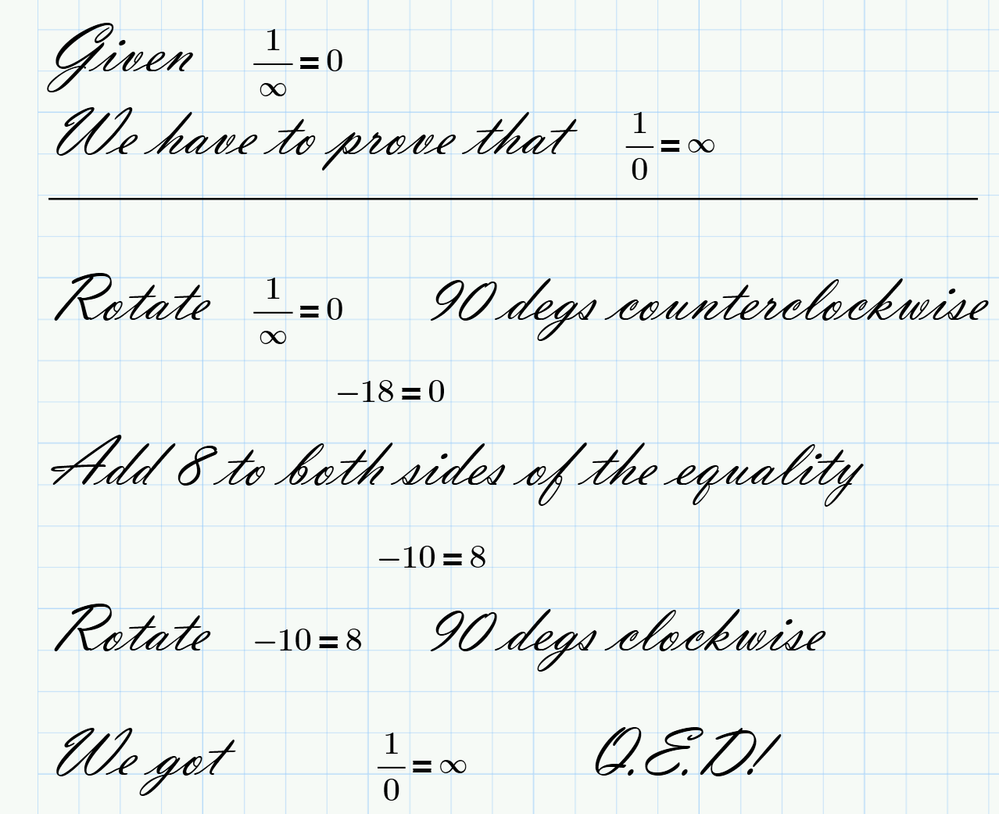 Given 1/∞ = 0
We have to prove that 1/0 = ∞
Rotate 1/∞ = 0 90 degs counterclockwise
−18 = 0
Add 8 to both sides of the equality
−10 = 8
Rotate −10 = 8 90 degs clockwise
We got 1/0 = ∞ Q.E.D!